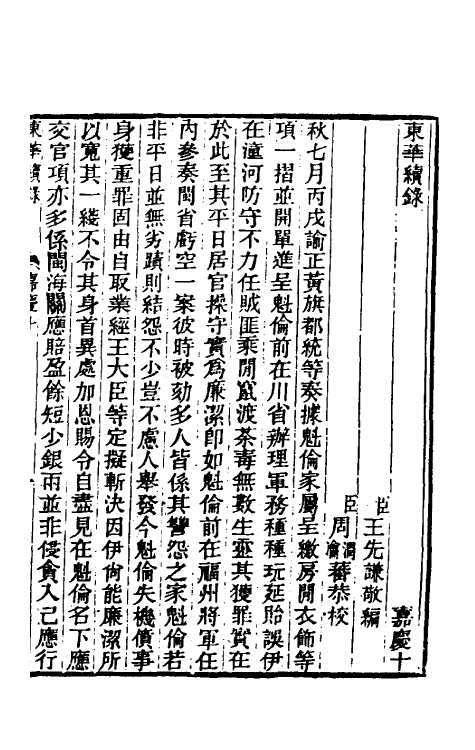 東華續錄　嘉慶十
臣王先謙敬編
臣周潤蕃周瀹蕃恭校
秋七月丙戌諭正黃旗都統等奏據魁倫家屬呈繳房間衣飾等
項一摺並開單進呈魁倫前在川省辦理軍務種種玩延貽誤伊
在潼河防守不力任賊匪乘閒竄渡荼毒無數生靈其獲罪實在
於此至其平日居官操守實爲廉潔卽如魁倫前在福州將軍任
內參奏閩省虧空一案彼時被劾多人皆係其讐怨之家魁倫若
非平日並無劣蹟則結怨不少豈不慮人舉發今魁倫失機僨事
身獲重罪固由自取業經王大臣等定擬斬決因伊尙能廉潔所
以寬其一綫不令其身首異處加恩賜令自盡見在魁倫名下應
交官項亦多係閩海關應賠盈餘短少銀兩並非侵貪入己應行
東華續錄　嘉慶十